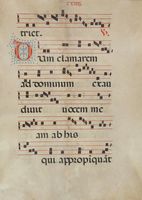 trict.
Dum clamarem
ad dominum exau
diuit uocem me
am ab his
qui appropiquāt